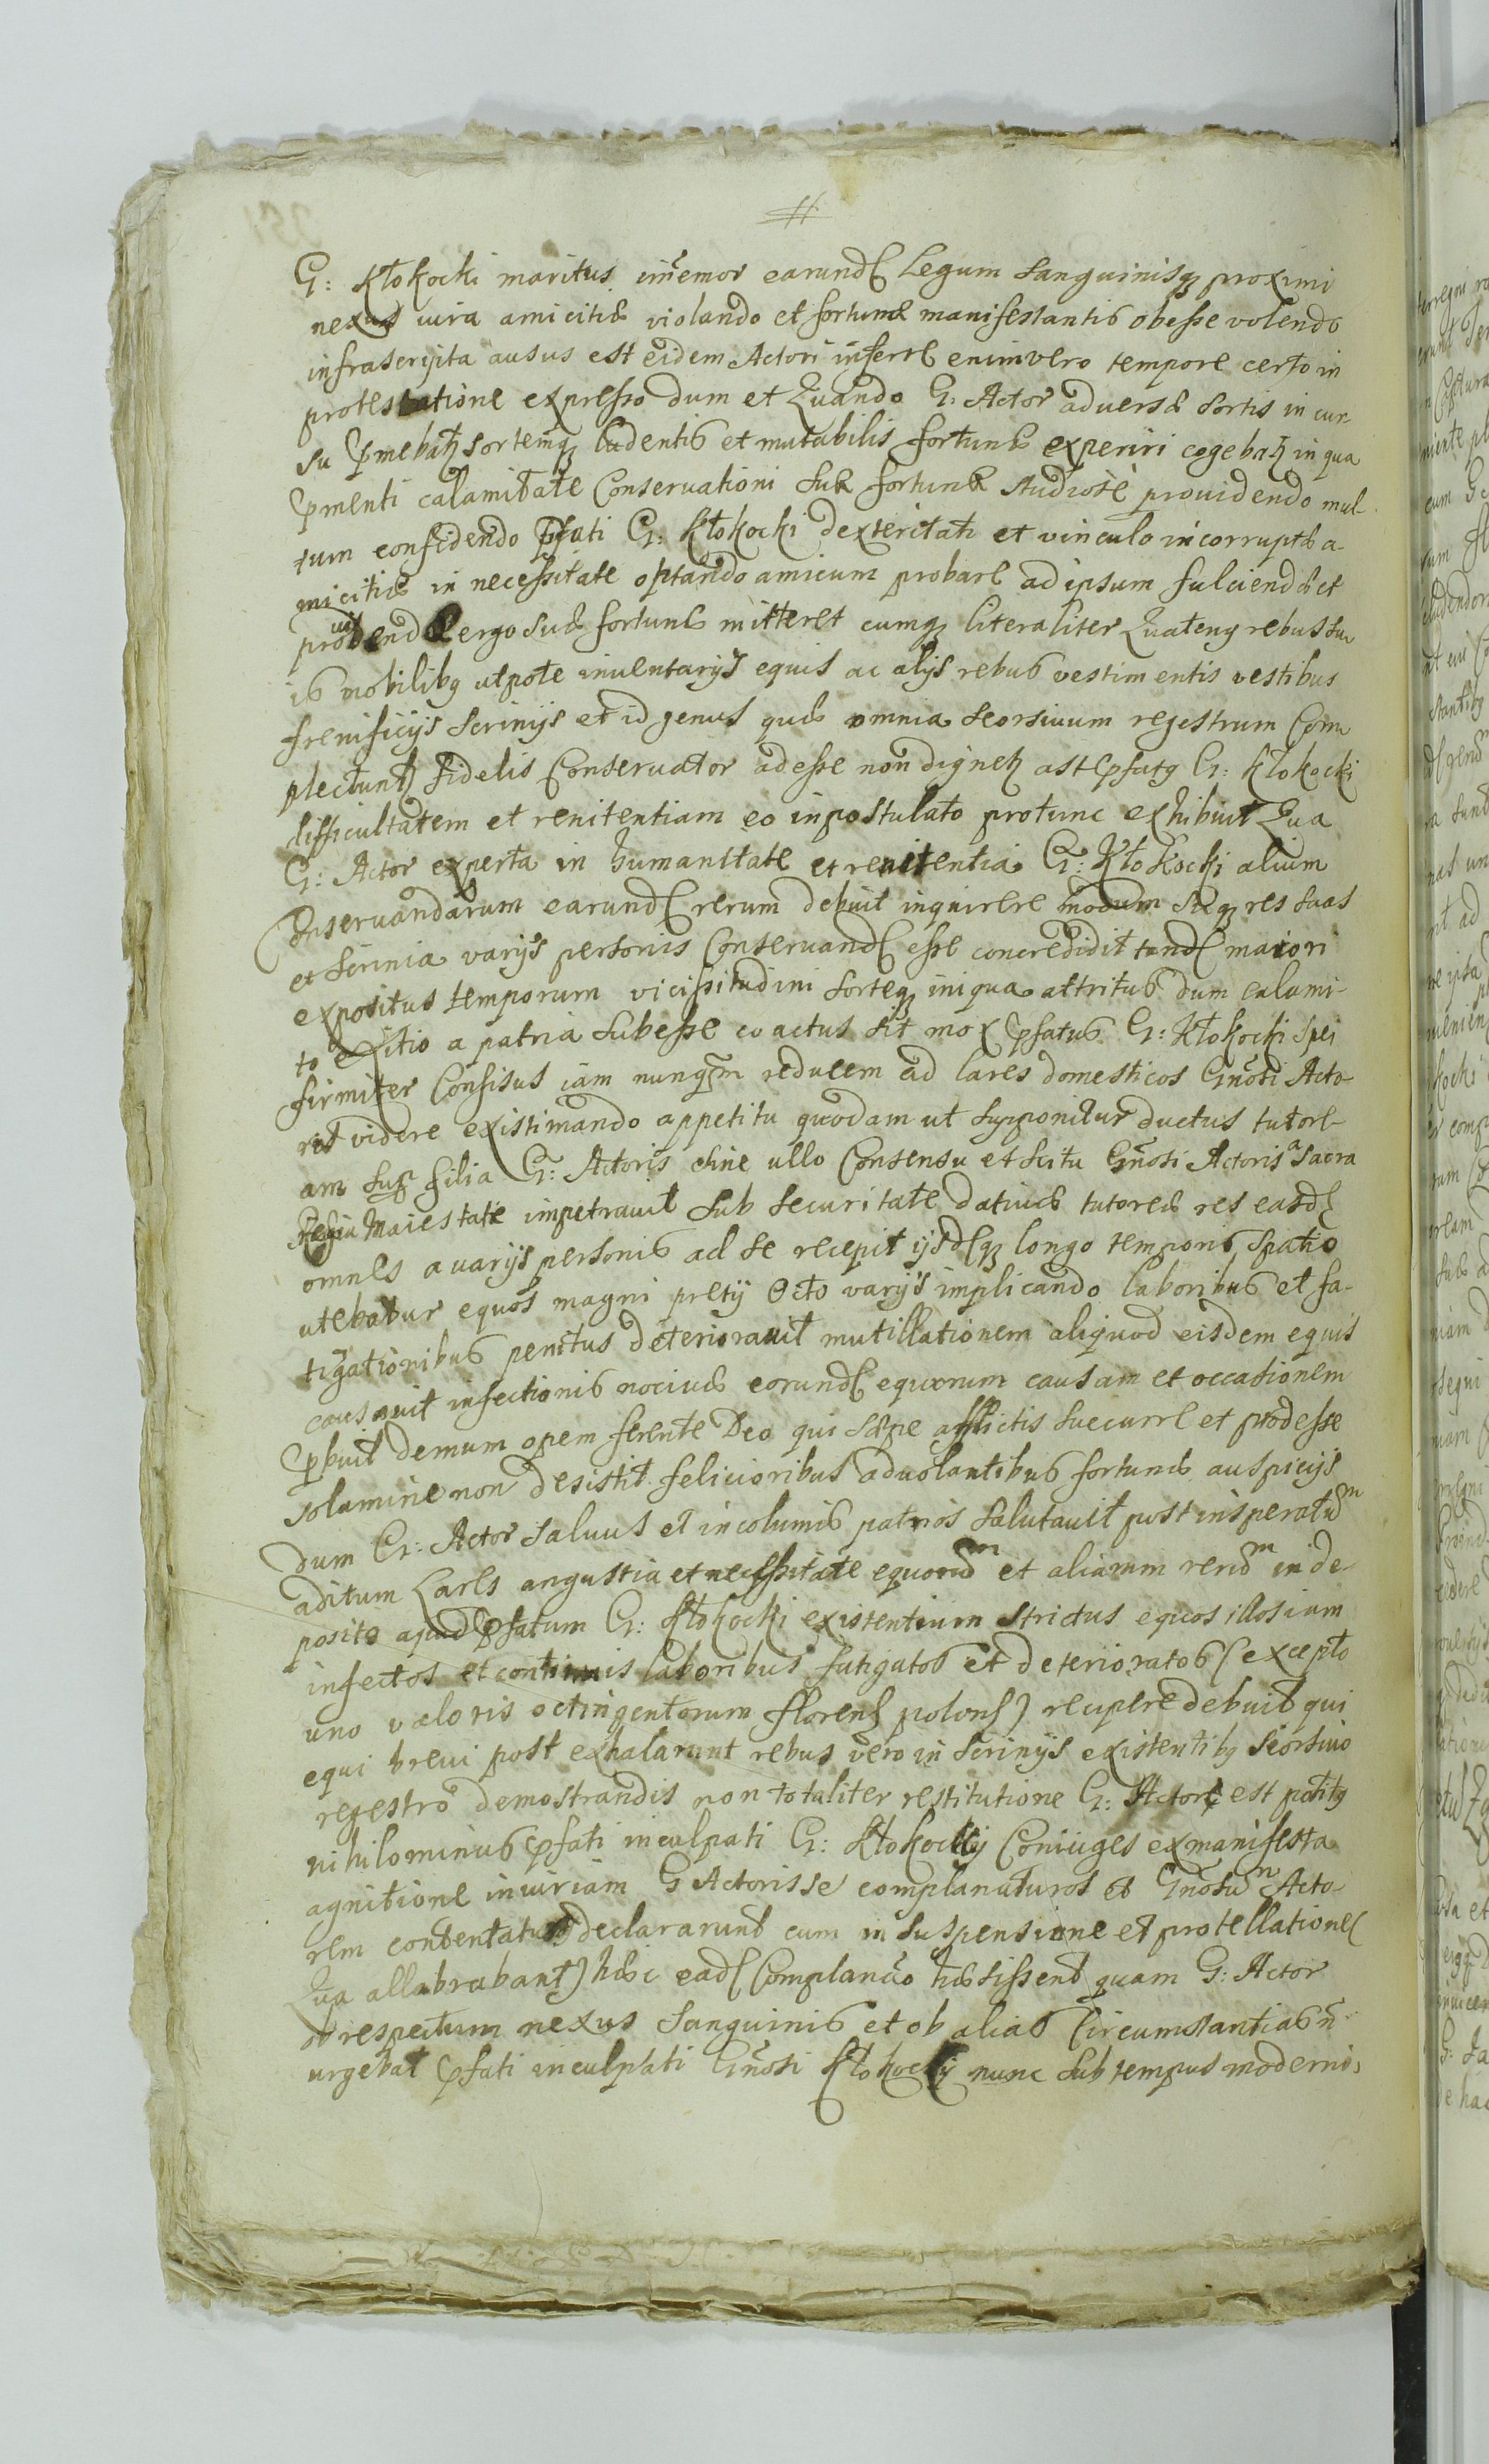 G: Kłokocki maritus im̃emor earund[ Legum Sanguinisq proximi
nexus iura amicitiæ violando et fortunæ manifestantis obesse volendo
infrascripta ausus est eidem Actori inferre enimvero tempore certo in
protestatione expresso dum et Quando G: Actor adversæ sortis in cur-
su p̃mebatz sortemq ludentis et mutabilis fortunæ experiri cogebatz in qua
p̃menti calamitate Conservationi suæ fortunæ studiosè providendo mul-
tum confidendo p̃fati G: Kłokocki dexteritati et vinculo incorruptæ a-
micitiæ in necessitate optando amicum probare ad ipsum fulciendæ et
ergo suæ fortunæ mitteret eumq literaliter Quatenq rebus su
is mobilibq utpote inventarijs equis ac alijs rebus vestimentis vestibus
frenificijs scrinijs et id genus quæ omnia seorsivum regestrum Com
plectuntz fidelis Conservator adesse non dignetz ast p̃fatq G: Kłokocki
difficultatem et renitentiam eo in postulato protunc exhibuit Qua
G: Actor experta in humanitate et renitentia G: Kłokocki alium
Conservandarum earund[ rerum debuit inquirere modum sicq res suas
et scrinia varijs personis Conservand[ esse concredidit tand[ maiori
expositus temporum vicissitudini sorteq iniqua attritus dum calami-
to exitio a patria subesse coactus sit mox p̃fatus G: Kłokocki spei
firmiter Confisus iam nunq̃m reducem ad lares domesticos Gñosi Acto-
ris videre existimando appetitu quodam ut supponitur ductus tutorl-
am sup filia G: Actoris sine ullo Consensu et scitu Gñosi Actoris a Sacra
Regia Maiestate impetravit sub securitate dativæ tutoreæ res easd[
omnes a varijs personis ad se recepit ijsd[q longo temporis spatio
utebatur equos magni pretij octo varijs implicando laboribus et fa-
tigationibus penitus deterioravit mutillationem aliquod eisdem equis
causavit infectionis nocivæ eorund[ equorum causam et occasionem
p̃buit demum opem ferente Deo qui sæpe afflictis succurre et prodesse
solamine non desistit felicioribus advolantibus fortunæ auspicijs
dum G: Actor salvus et incolumis patrios salutavit post insperatum
aditum Lares angustia et necessitate equorum et aliarum rerum in de
posito apud p̃fatum G: Kłokocki existentium strictus equos illos iam
infectos et continuis laboribus fatigatos et deterioratos (excepto
uno valoris octingentorum floren[ polon[) recipere debuit qui
equi brevi post exhalarunt rebus vero in scrinijs existentibq seorsivo
regestro demostrandis non totaliter restitutione G: Actor est potitq
nihilominus p̃fati inculpati G: Kłokockij Coniuges ex manifesta
agnitione iniuriam G Actoris se complanaturos et Gñosum Acto-
rem contentaturos declararunt cum in suspensione et protellatione[
Qua allabrabant) hæc ead[ Complanc̃o hæsissent quam G: Actor
ob respectum nexus sanguinis et ob alias Circumstantias ñ
urgebat p̃fati inculpati Gñosi Kłokockij nunc sub tempus moderni